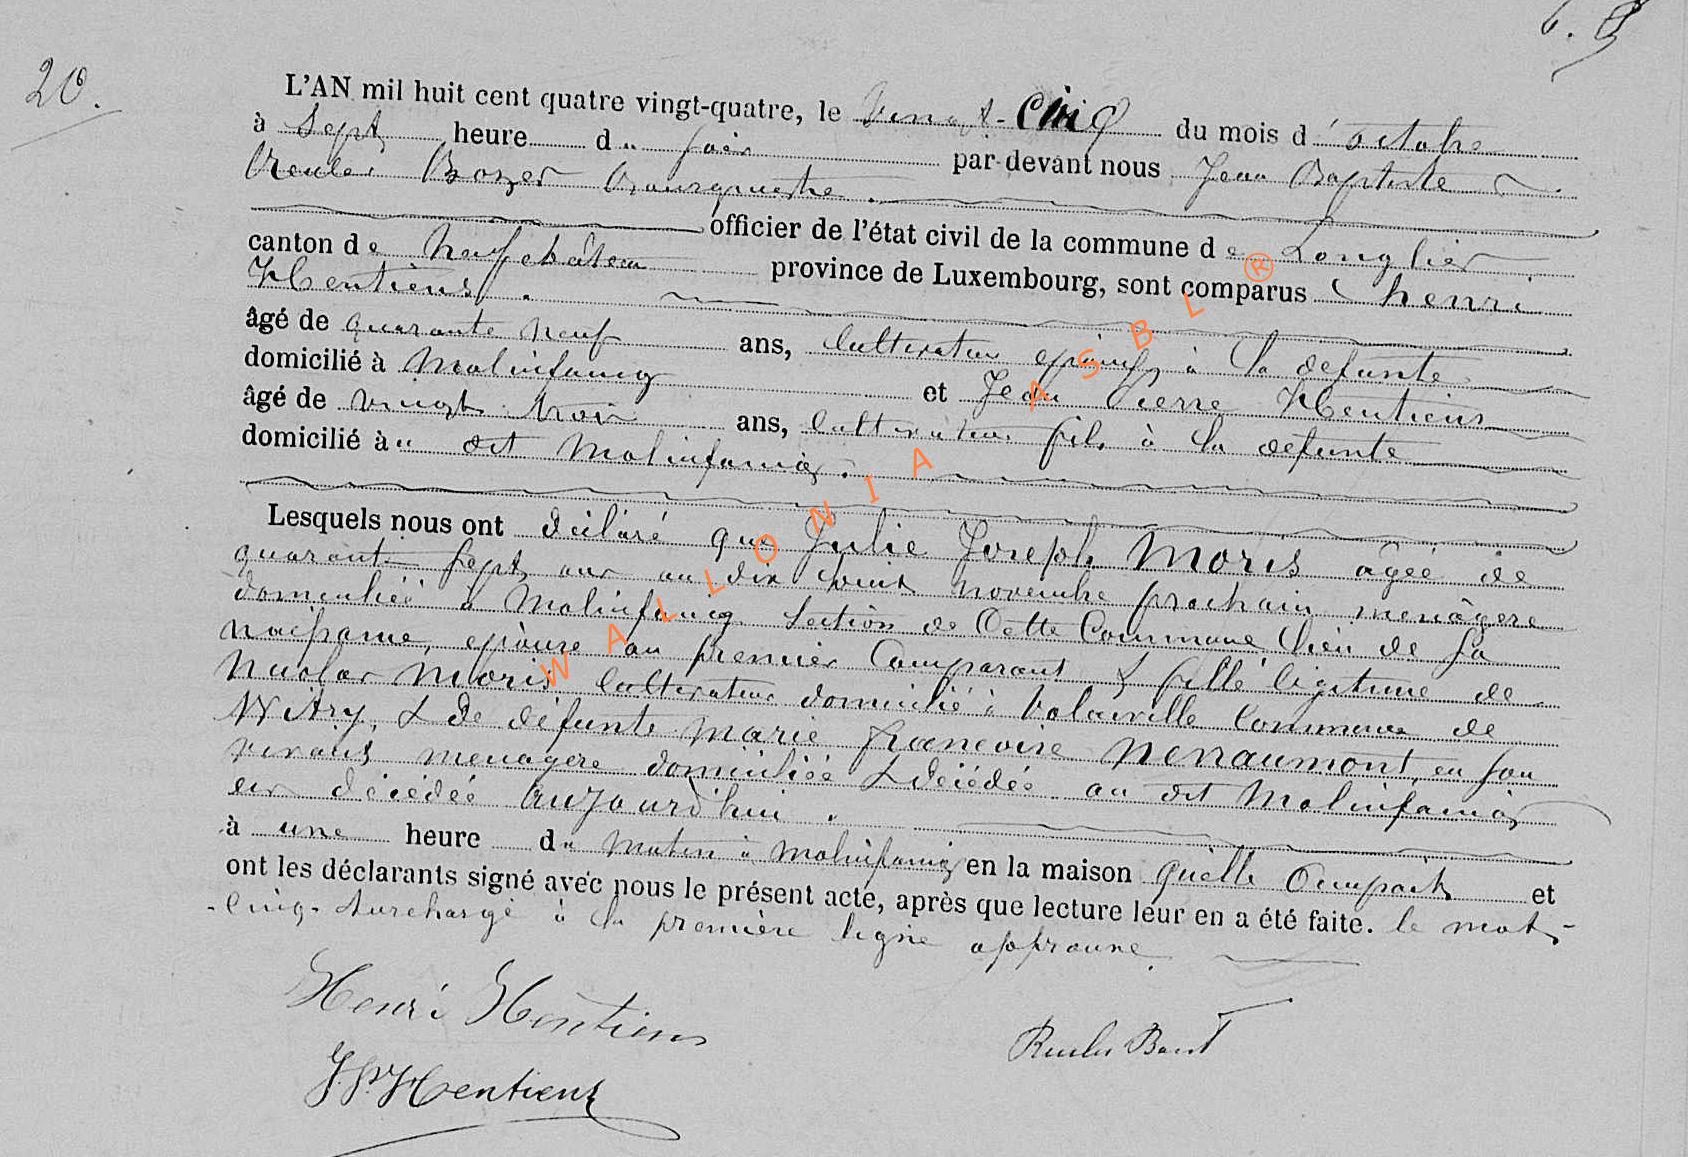 20.
L'AN mil huit cent quatre vingt-quatre, le vingt-cinq du mois d'octobre
à sept heure du soir par-devant nous Jean Baptiste
Reuler Bozet Bourgmestre
officier de l'état civil de la commune de Longlier
canton de Neufchâteau province de Luxembourg, sont comparus henri
Hentiens.
âgé de quarante neuf ans, Cultivateur époux à la defunte
domicilié à Molinfaing et Jean Pierre Hentiens
âgé de vingt trois ans, cultivateur fils à la defunte
domicilié à u dit Molinfaing.
Lesquels nous ont déclaré que Julie Joseph Moris âgée de
quarante sept ans au dix huit novembre prochain menàgere
domiciliée à Molinfaing Section de Cette Commune lieu de sa
naissance, épouse au premier Comparant & fille légitime de
Nicolas Moris Cultivateur domicilié à Volaiville Commune de
Witry, & de défunte Marie françoise Nerraumont, en son
vivant menagère domiciliée & décédée au dit Molinfaing
est décédée aujourd'hui.
à une heure du matin à Molinfaing en la maison qu'elle Occupait et
ont les déclarants signé avec nous le présent acte, après que lecture leur en a été faite. le mot-
-cinq- surchargé à la première ligne approuvé.
Henri Hentiens
J P Hentiens
W A L L O N I A A S B L ®